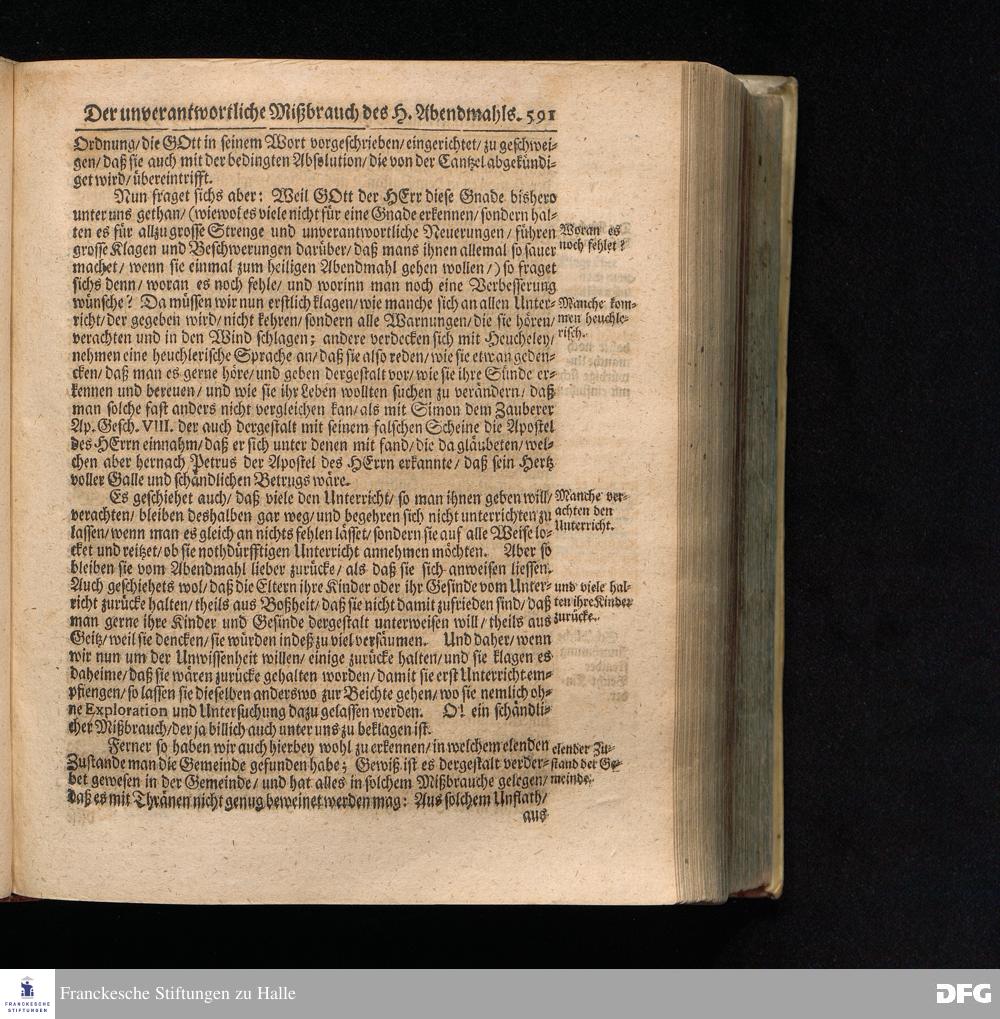 Der unverantwortliche Mißbrauch des H. Abendmahls. 591
Ordnung/ die GOtt in seinem Wort vorgeschrieben/ eingerichtet/ zu geschwei-
gen/ daß sie auch mit der bedingten Absolution/ die von der Cantzel abgekündi-
get wird/ übereintrifft.
Nun fraget sichs aber: Weil GOtt der HErr diese Gnade bishero
unter uns gethan/ (wiewol es viele nicht für eine Gnade erkennen/ sondern hal-
ten es für allzu grosse Strenge und unverantwortliche Neuerungen/ führen
grosse Klagen und Beschwerungen darüber/ daß mans ihnen allemal so sauer
machet/ wenn sie einmal zum heiligen Abendmahl gehen wollen/) so fraget
sichs denn/ woran es noch fehle/ und worinn man noch eine Verbesserung
wünsche? Da müssen wir nun erstlich klagen/ wie manche sich an allen Unter-
richt/ der gegeben wird/ nicht kehren/ sondern alle Warnungen/ die sie hören/
verachten und in den Wind schlagen; andere verdecken sich mit Heucheley/
nehmen eine heuchlerische Sprache an/ daß sie also reden/ wie sie etwan geden-
cken/ daß man es gerne höre/ und geben dergestalt vor/ wie sie ihre Sünde er-
kennen und bereuen/ und wie sie ihr Leben wollten suchen zu verändern/ daß
man solche fast anders nicht vergleichen kan/ als mit Simon dem Zauberer
Ap. Gesch. VIII. der auch dergestalt mit seinem falschen Scheine die Apostel
des HErrn einnahm/ daß er sich unter denen mit fand/ die da gläubeten/ wel-
chen aber hernach Petrus der Apostel des HErrn erkannte/ daß sein Hertz
voller Galle und schändlichen Betrugs wäre.
Es geschiehet auch/ daß viele den Unterricht/ so man ihnen geben will/
verachten/ bleiben deshalben gar weg/ und begehren sich nicht unterrichten zu
lassen/ wenn man es gleich an nichts fehlen lässet/ sondern sie auf alle Weise lo-
cket und reitzet/ ob sie nothdürfftigen Unterricht annehmen möchten. Aber so
bleiben sie vom Abendmahl lieber zurücke/ als daß sie sich anweisen liessen.
Auch geschiehets wol/ daß die Eltern ihre Kinder oder ihr Gesinde vom Unter-
richt zurücke halten/ theils aus Boßheit/ daß sie nicht damit zufrieden sind/ daß
man gerne ihre Kinder und Gesinde dergestalt unterweisen will/ theils aus
Geitz/ weil sie dencken/ sie würden indeß zu viel versäumen. Und daher/ wenn
wir nun um der Unwissenheit willen/ einige zurücke halten/ und sie klagen es
daheime/ daß sie wären zurücke gehalten worden/ damit sie erst Unterricht em-
pfiengen/ so lassen sie dieselben anderswo zur Beichte gehen/ wo sie nemlich oh-
ne Exploration und Untersuchung dazu gelassen werden. O! ein schändli-
cher Mißbrauch/ der ja billich auch unter uns zu beklagen ist.
Ferner so haben wir auch hierbey wohl zu erkennen/ in welchem elenden
Zustande man die Gemeinde gefunden habe; Gewiß ist es dergestalt verder-
bet gewesen in der Gemeinde/ und hat alles in solchem Mißbrauche gelegen/
daß es mit Thränen nicht genug beweinet werden mag: Aus solchem Unflath/
aus
Woran es
noch fehlet?
Manche kom-
men heuchle-
risch.
Manche ver-
achten den
Unterricht.
und viele hal-
ten ihre Kinder
zurücke.
elender Zu-
stand der Ge-
meinde.
FRANCKESCHE
STIFTUNGEN
Franckesche Stiftungen zu Halle
DFG